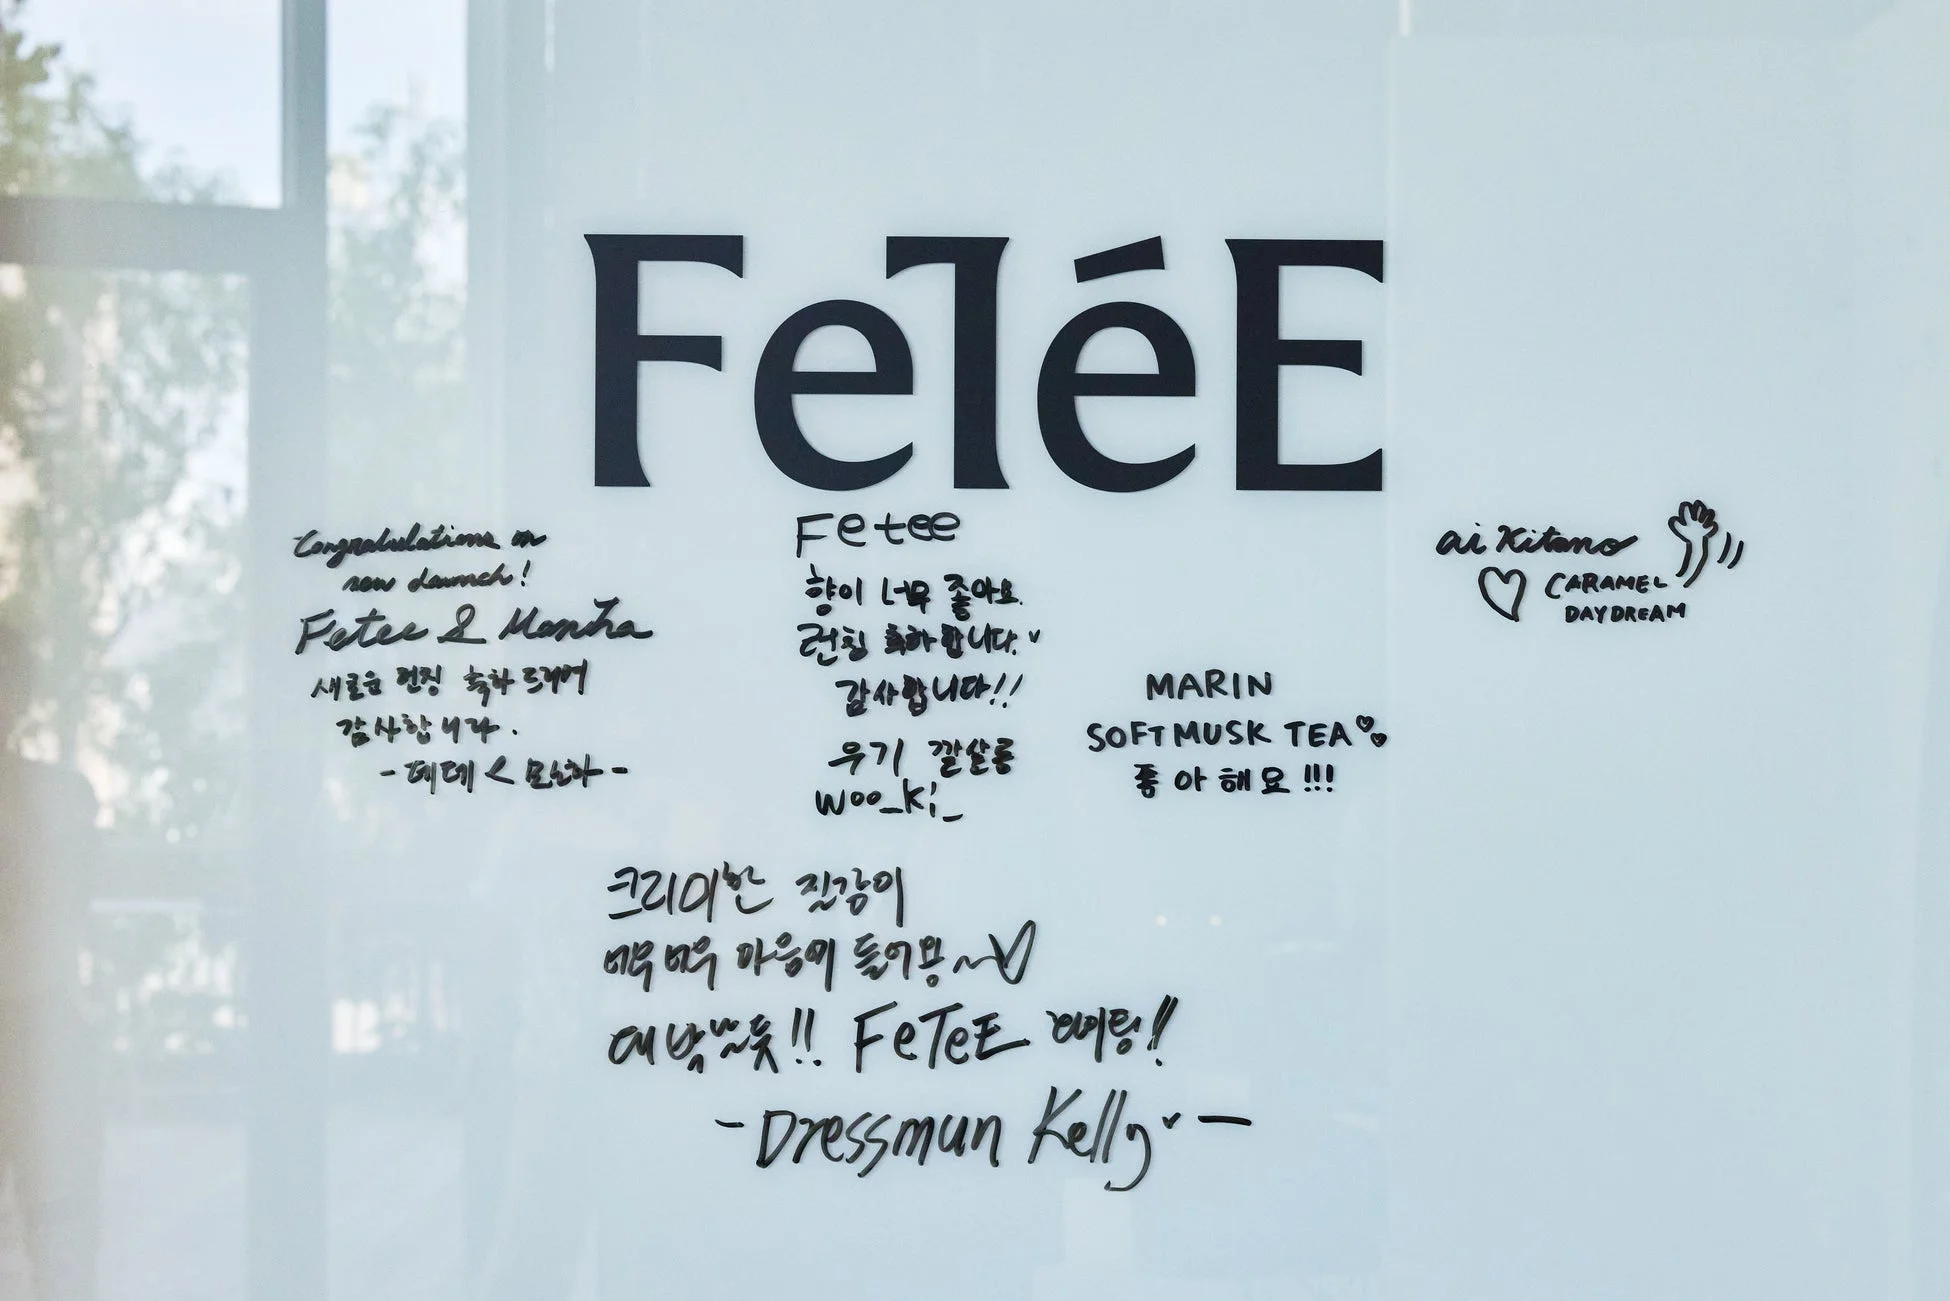 FeTéE
Congratulations on
new launch!
Fetee & Monha
새로운 런칭 축하드리며
감사합니다.
Fetee
향이 너무 좋아요.
런칭 축하합니다.
감사합니다!!
우기 깔살롱
woo_ki_
MARIN
SOFT MUSK TEA
좋아해요!!!
ai Kitano
CARAMEL
DAYDREAM
크리미한 질감이
너무너무 마음에 들어용~
대박날듯!! FeTeE 화이팅!!
-Dressmun Kelly-